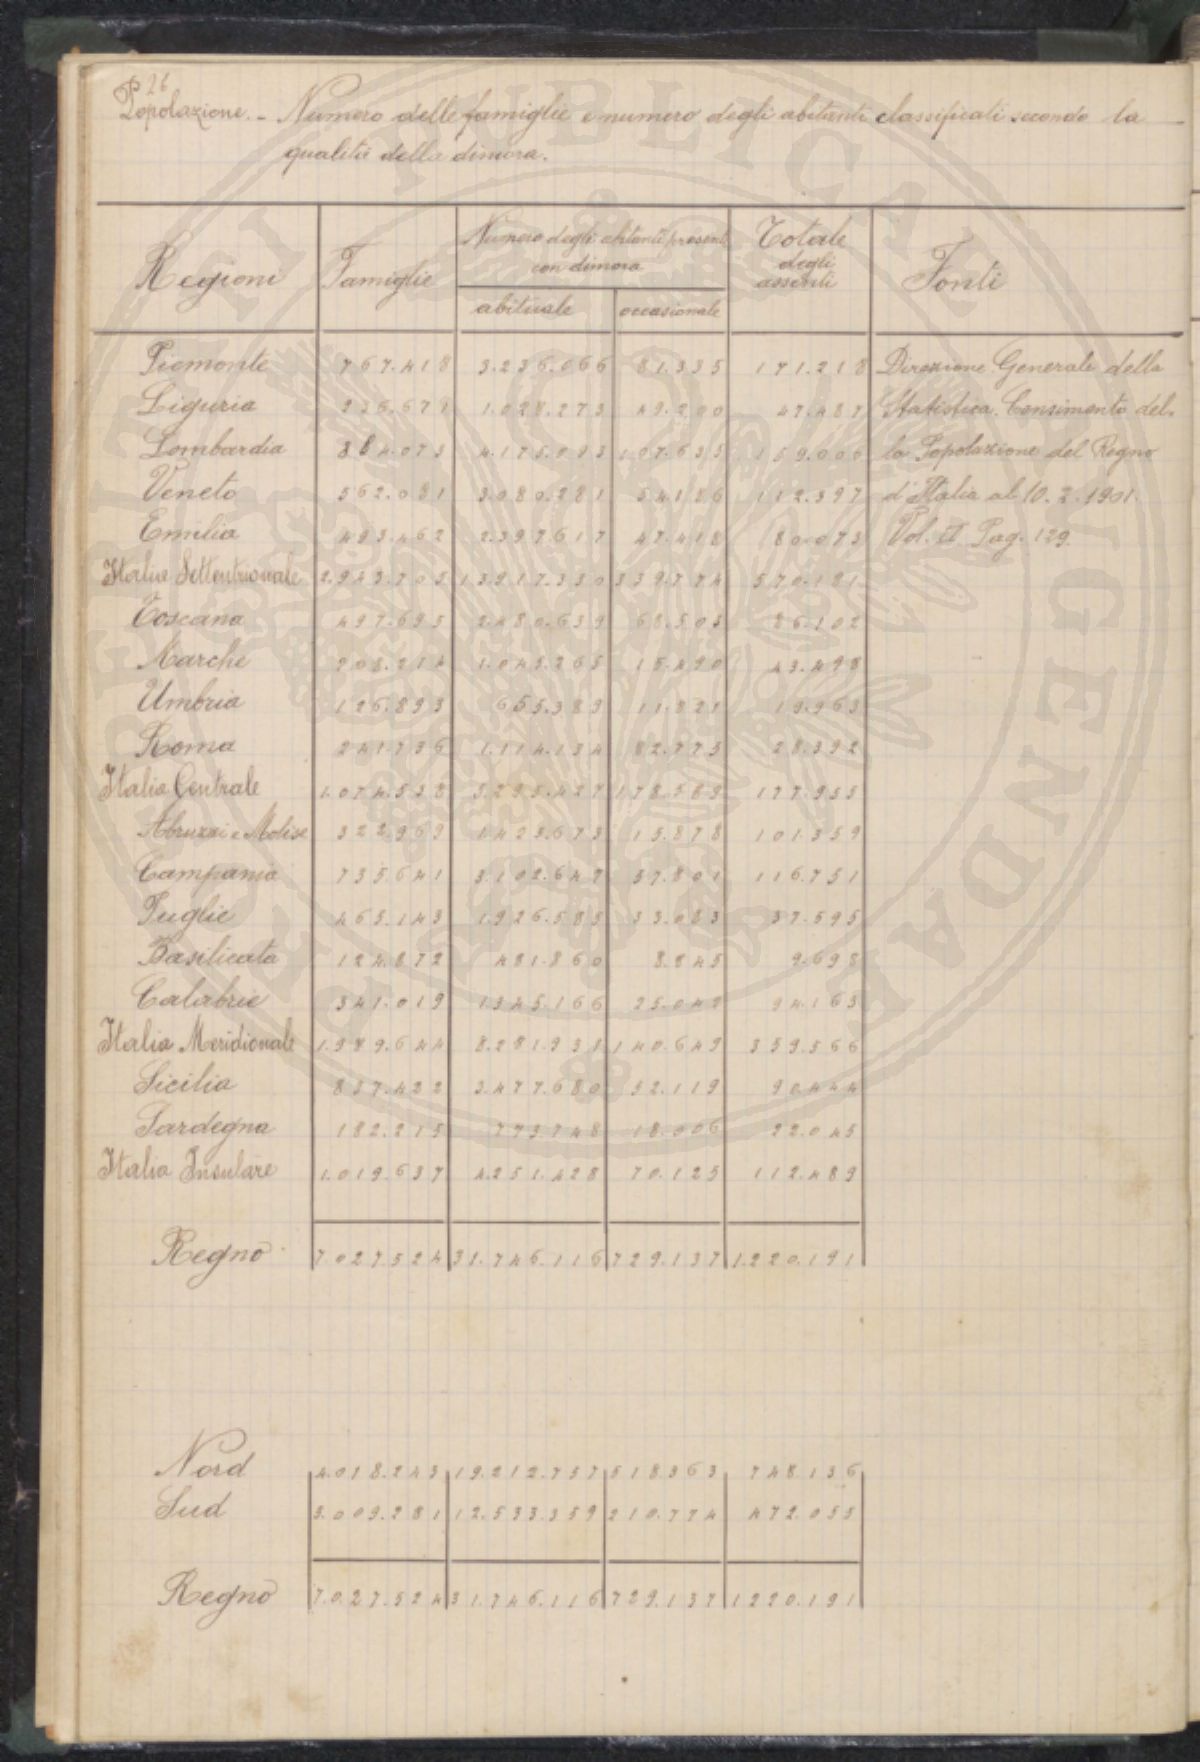 26
Popolazione. - Numero delle famiglie e numero degli abitanti classificati secondo la
qualità della dimora.
Regioni Famiglie Numero degli abitanti presenti con dimora Totale degli assenti Fonti
abituale occasionale
Piemonte 767.418 3.236.066 81.335 171.218 Direzione Generale della
Liguria 236.671 1.028.273 49.200 47.487 Statistica. Censimento del-
Lombardia 884.073 4.175.093 107.635 159.006 la Popolazione del Regno
Veneto 562.081 3.080.281 54.186 112.397 d'Italia al 10.2.1901.
Emilia 493.462 2.397.617 47.418 80.073 Vol. II Pag. 129.
Italia Settentrionale 2.943.705 13.917.330 339.774 570.181
Toscana 497.695 2.480.639 68.503 86.102
Marche 208.214 1.045.265 15.490 43.498
Umbria 126.893 655.389 11.821 19.963
Roma 241.736 1.114.134 82.775 28.392
Italia Centrale 1.074.538 5.295.427 178.589 177.955
Abruzzi e Molise 322.969 1.425.673 15.878 101.359
Campania 735.641 3.102.647 57.801 116.751
Puglie 465.143 1.926.585 33.083 37.595
Basilicata 124.872 481.860 8.845 9.698
Calabrie 341.019 1.345.166 25.042 94.163
Italia Meridionale 1.989.644 8.281.931 140.649 359.566
Sicilia 837.422 3.477.680 52.119 90.444
Sardegna 182.215 773.748 18.006 22.045
Italia Insulare 1.019.637 4.251.428 70.125 112.489
Regno 7.027.524 31.746.116 729.137 1.220.191
Nord 4.018.243 19.212.757 518.363 748.136
Sud 3.009.281 12.533.359 210.774 472.055
Regno 7.027.524 31.746.116 729.137 1.220.191